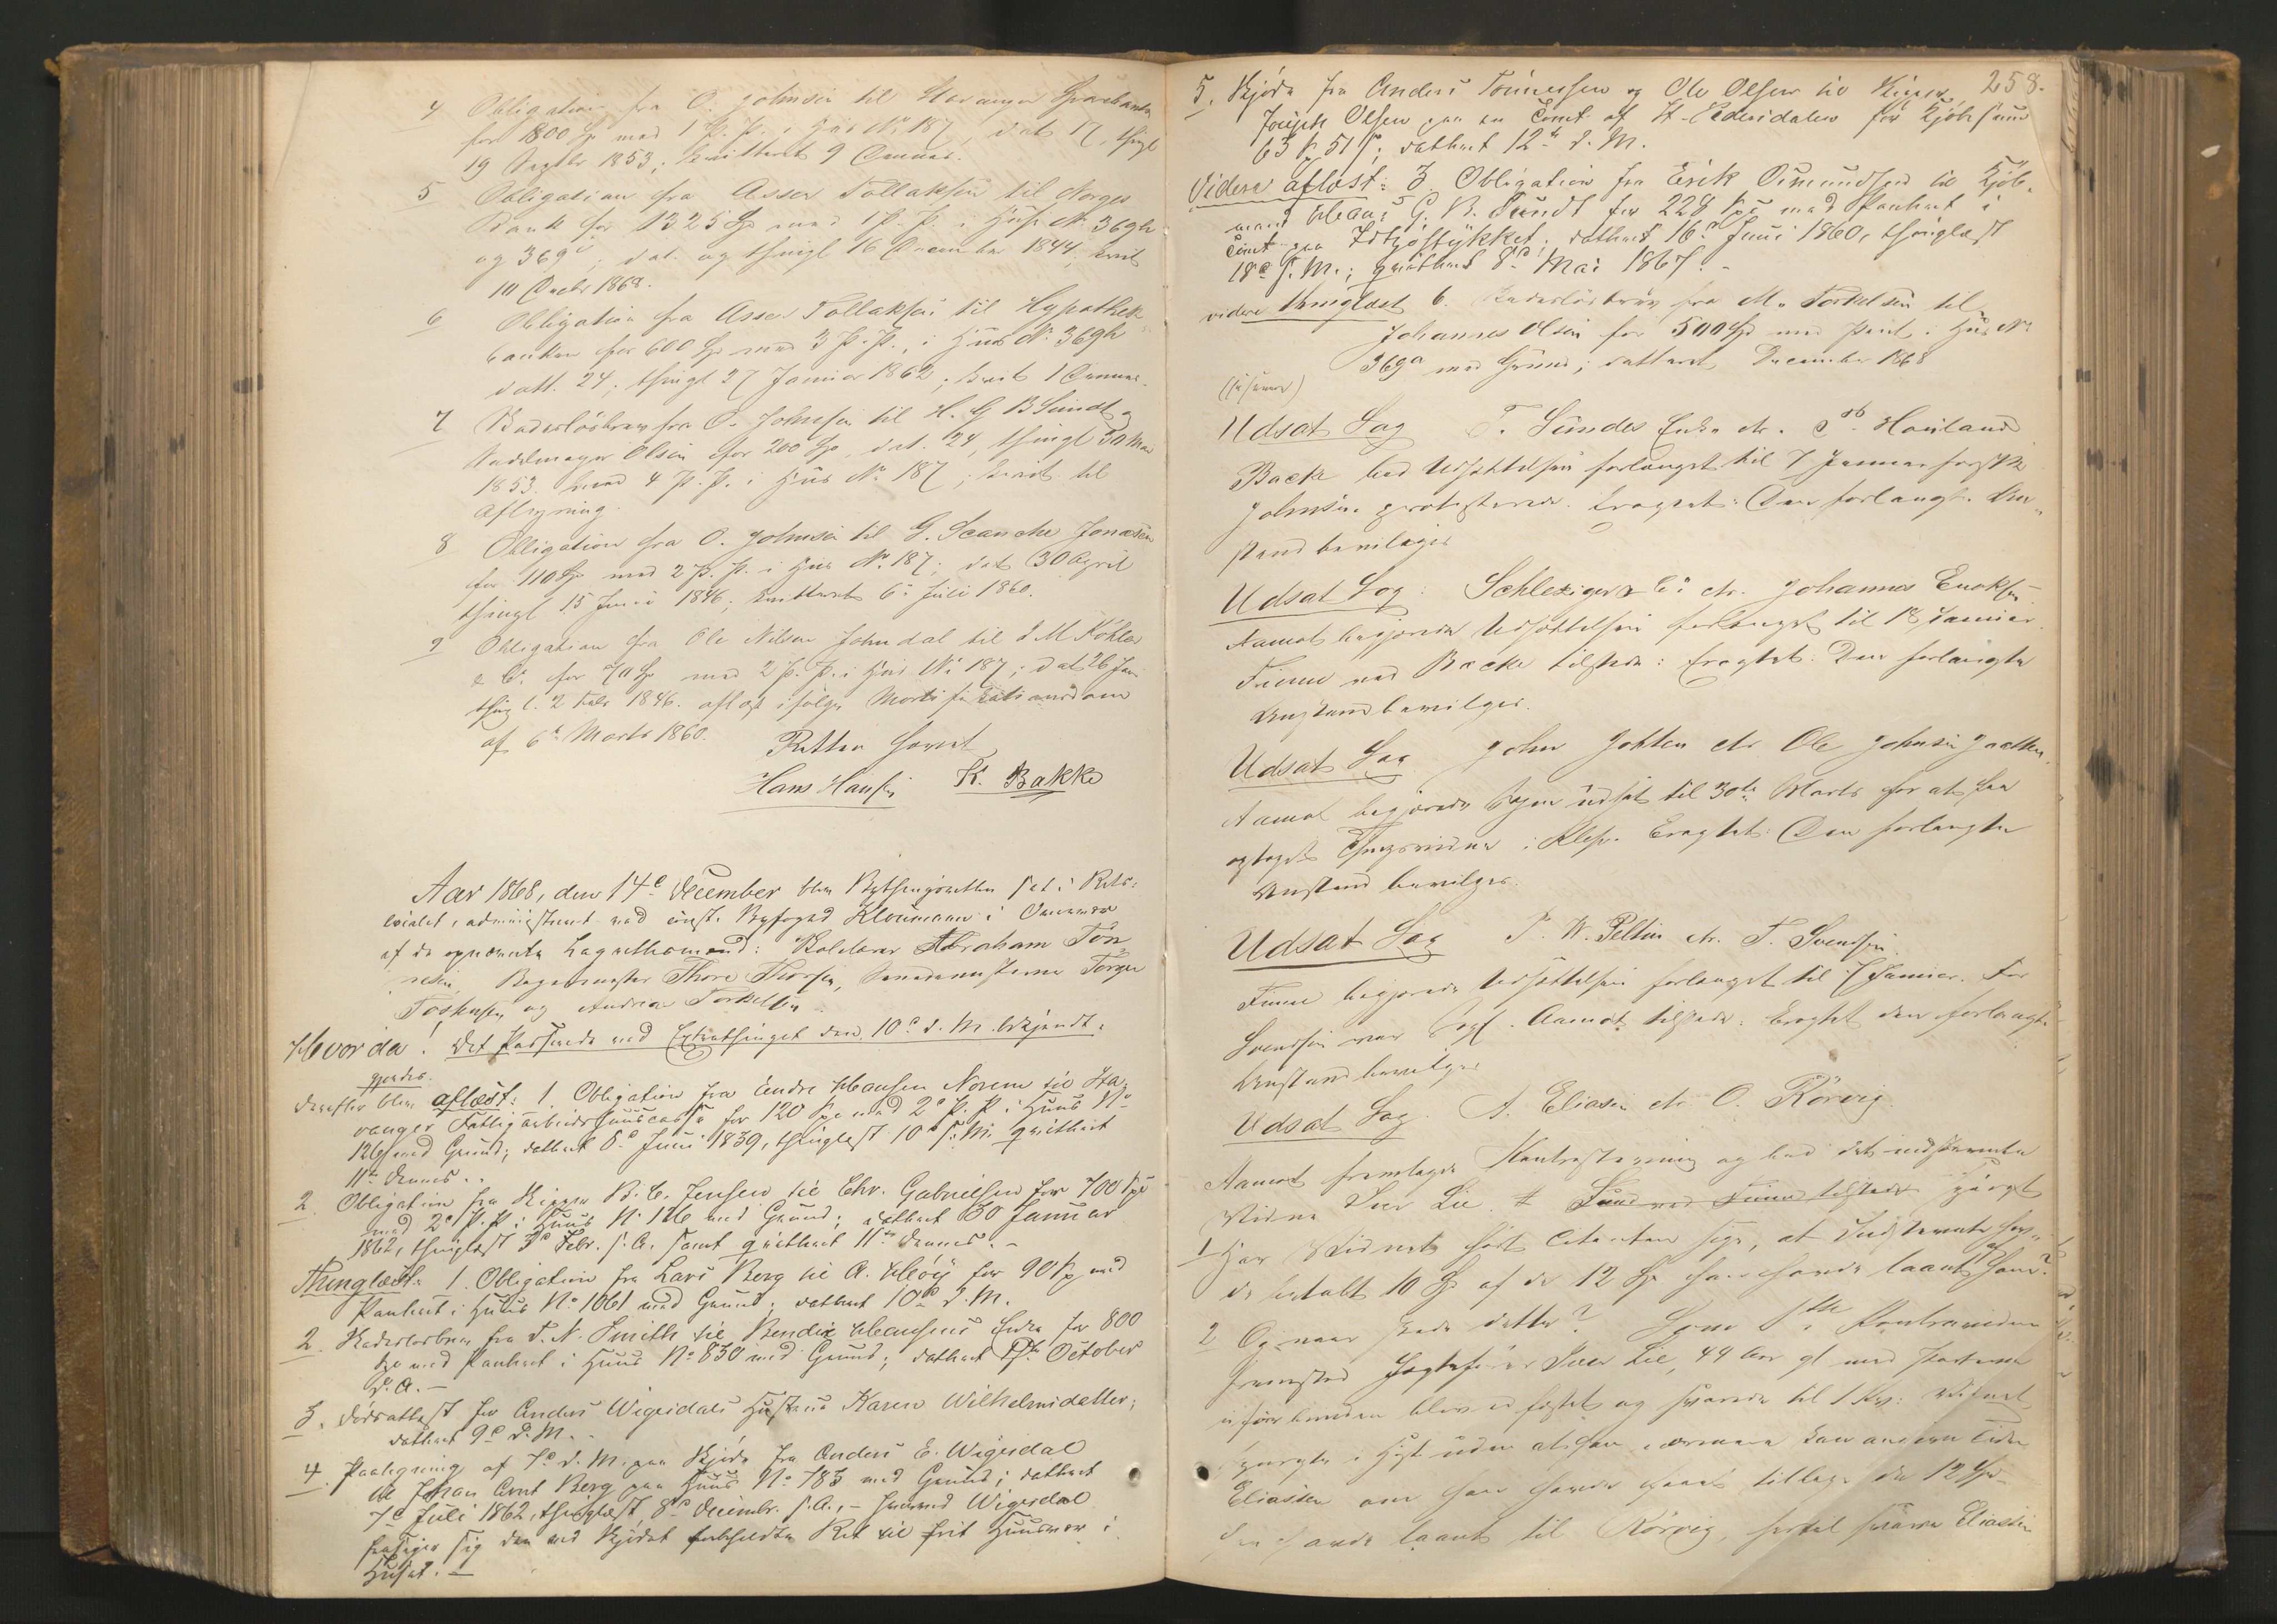 4 Obligation fra O. Johnsen til Stavanger Sparebank
for 1800 Spd med 1 P. P. i Huus No 187, dat. 17, thingl
19 Septbr 1853; kvitteret 9 Dennes.
5 Obligation fra Asser Tollaksen til Norges
Bank for 1325 Spd med 1 P. P. i Huse No 369h
og 369i; dat. og thingl 16 December 1844; kvit
10 Decbr 1868.
6 Obligation fra Asser Tollaksen til Hypothek
banken for 600 Spd med 3 P. P., i Huus No 369h
datt. 24, thingl 27 Januar 1862; kvit 1 Dennes.
7 Gadesløsbrev fra O. Johnsen til H. G. B. Sundt og
Sadelmager Olsen for 200 Spd, dat. 24, thingl 30 Mai
1853 med 4 P. P. i Huus No 187; kvit til
Aflysning.
8 Obligation fra O. Johnsen til G. Scanche Jonasen
for 110 Spd med 2 P. P. i Huus No 187; dat 30 April
thingl 15 Juni 1846; kvitteret 6te Juli 1860.
9 Obligation fra Ole Nilsen Johndal til J M Köhler
& Co for 70 Spd med 2 P. P. i Huus No 187; dat 26 Jan
thingl. 2 Febr 1846. aflæst ifølge Mortifikationsdom
af 6te Marts 1860.
Retten hævet
Hans Hansen K. Bakke
Aar 1868, den 14de December blev Bythingsretten sat i Rets-
localet, administreret ved const. Byfoged Kloumann i Overvær
af de opnævnte Laugrettesmænd: Abraham Tön
nesen, Bagermester Thore Thorsen, Torger
Toskesen og Andreas Torkelsen.
Hvorda! Det Passerede ved Extrathinget den 10de d. M. bekjendt-
gjordes.
Derefter blev aflæst: 1. Obligation fra Endre Hansen Norem til Sta-
vanger Fattigarbeidshuuscassa for 120 Spd med 2de P. P. i Huus No
126 med Grund; datteret 8de Juni 1839, thinglæst 10de s. M. qvitteret
11te Dennes.
2. Obligation fra Skipper B. C. Jensen til Chr. Gabrielsen for 700 Spd
med 2de P. P. i Huus No 126 med Grund; datteret 30 Januar
1862, thinglæst 3de Febr. s. A. samt qvitteret 11te Dennes.
Thinglæst: 1. Obligation fra Lars Berg til A. Høÿ for 90 Spd med
Panteret i Huus No 1061 med Grund; datteret 10de d. M.
2. Kadesløsbrev fra P. N. Smith til Bendix Hansens Enke for 800
Spd med Panteret i Huus No 830 med Grund; datteret October
d. A.
3. Dødsattest for Anders Wigesdals Hustru Karen Wilhelmsdatter;
datteret 9de d. M.
4. Paategning af 7de d. M. paa Skjøde fra Anders E. Wigesdal
til Johan Arnt Berg paa Huus No 783 med Grund; datteret
7de Juli 1862, thinglæst 8de Decembr. s. A., hvorved Wigesdal
frasiger sig den ved Skjødet forbeholdte Ret til frit Huusvær i
Huset.
258.
5. Skjøde fra Anders Tönnessen og Ole Olsen til Skipper
Joseph Olsen paa en Tomt af St. Pedersdalen for Kjøbesum
63 Spd 51 s; datteret 12te d. M.
Videre aflæst: 3 Obligation fra Erik Osmundsen til Kjøb-
mand Hans G. B. Sundt for 228 Spd med Panteret i
Tomt paa; datteret 16de Juni 1860, thinglæst
18de s. M.; qvitteret 8de Mai 1867.
videre thinglæst 6. Kadesløsbrev fra M. Torkelsen til
Johannes Olsen for 500 Spd med Pant i Huus No
369a med Grund; datteret December 1868
Udsat Sag T. Sundes Enke ctr. P. Houland
Back bad Udsættelsen forlænget til 7 Januar førstk
Johnsen protesterede. Eragtet: Den forlangte An-
stand bevilges
Udsat Sag: Schleziger & Co ctr. Johannes Enoksen
Aamot begjærede Udsættelsen forlænget til 18 Januar.
Finne ved Backe tilstede: Eragtet: Den forlangte
Anstand bevilges.
Udsat Sag John Johten ctr Ole Johnsen Jaatten
Aamot begjærede Sagen udsat til 30te Marts for at faa
optaget Thingsvidne i Klep. Eragtet: Den forlangte
Anstand bevilges.
Udsat Sag P. W. Peltin ctr. T. Svendsen
Finne begjærede Udsættelsen forlænget til 7 Januar. For
Svendsen var Sagf. Aamot tilstede. Eragtet den forlangte
Anstand bevilges
Udsat Sag. A. Eliasen ctr O. Rörvig
Aamot fremlagde Kontrastevning og bad det indstevnte
Vidne Iver Lie
1 Har Vidnet hørt Citanten sige, at Indstevnte hav-
de betalt 10 Spd af de 12 Spd han havde laant ham?
2 Og naar skede dette? Som 1ste Kontravidne
fremstod Jagtefører Iver Lie, 44 Aar gl
blev edfæstet og svarede til 1 Kv: Vidnet
Eliassen om han havde faaet tilbage de 12 Spd
han havde laant til Rörvig, hertil svarede Eliassen